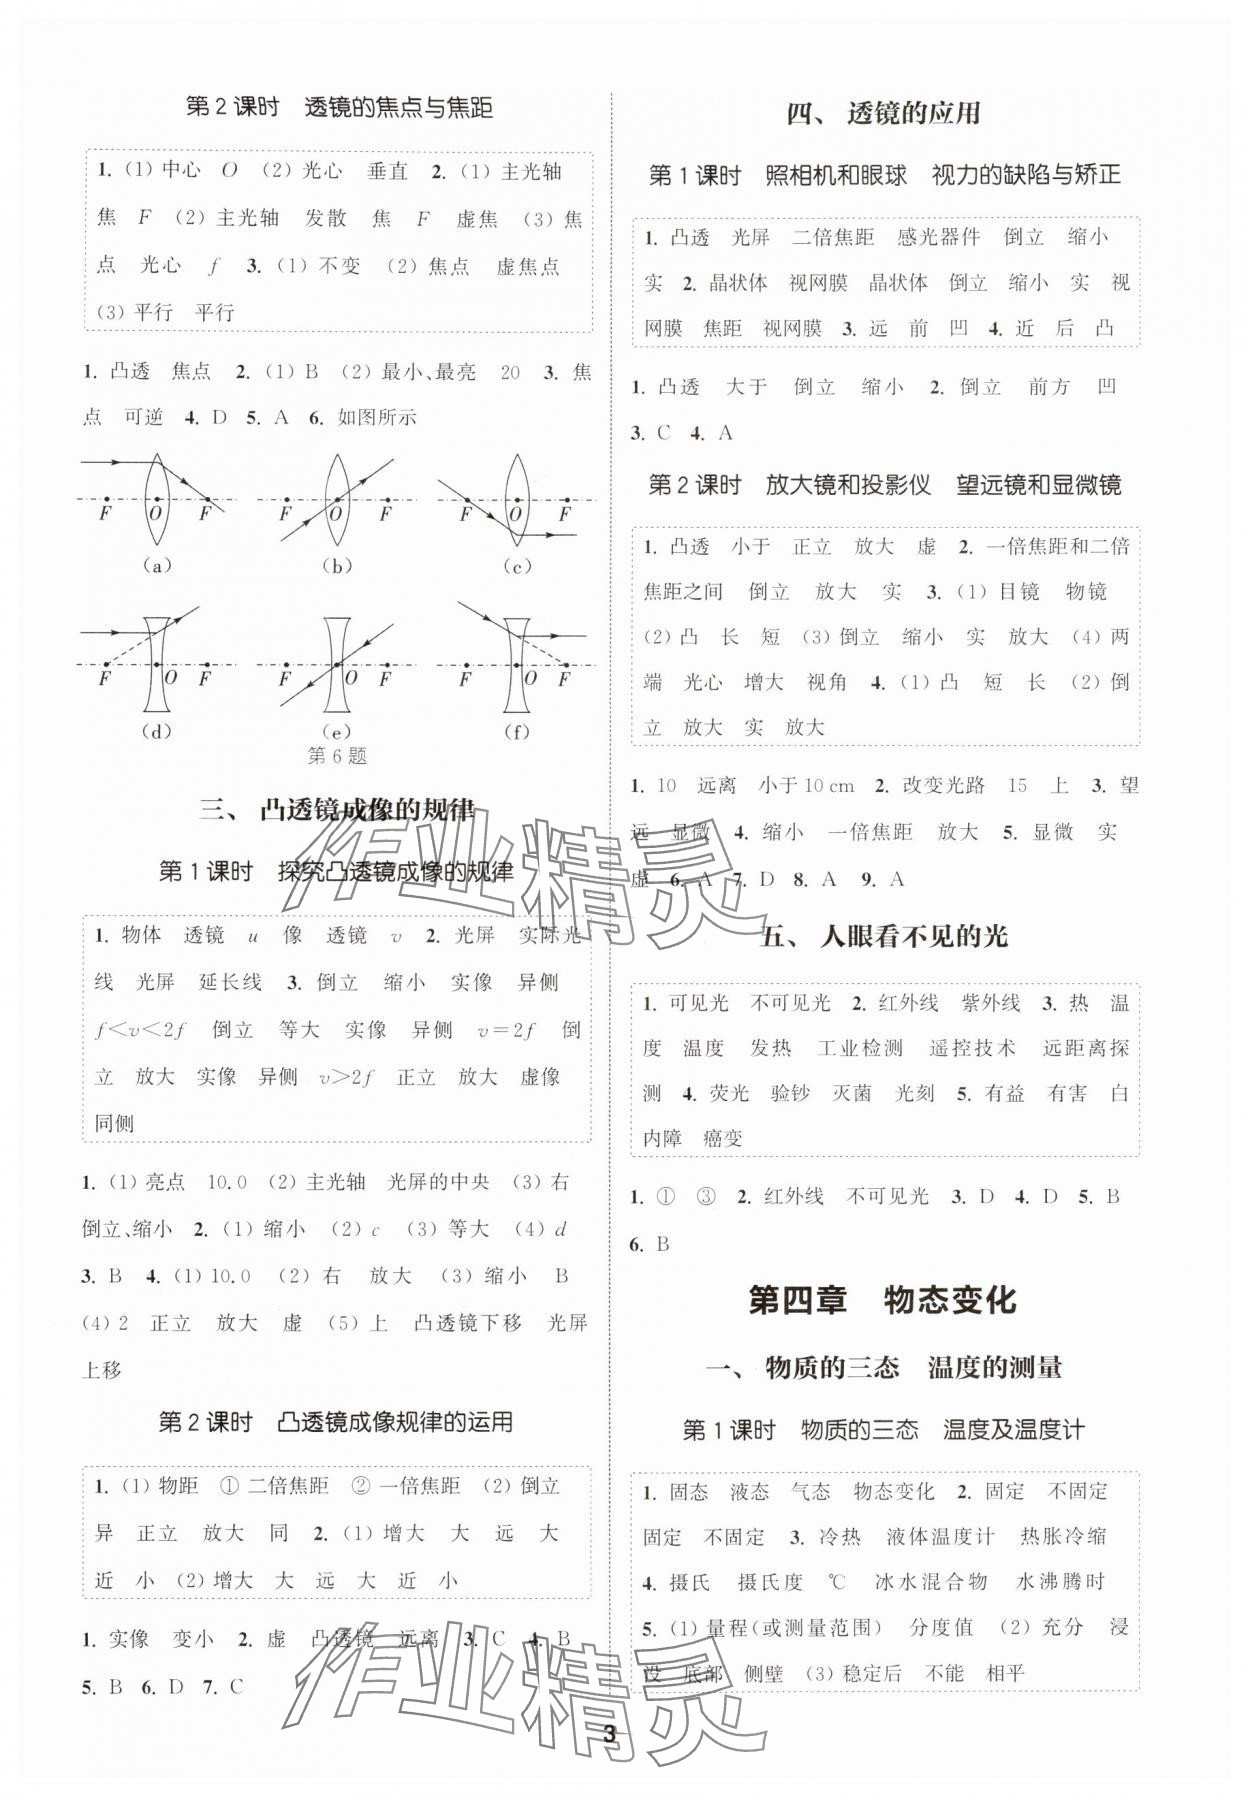 第2课时　透镜的焦点与焦距
1. (1)中心　O　(2)光心　垂直　2. (1)主光轴
焦　F　(2)主光轴　发散　焦　F　虚焦　(3)焦
点　光心　f　3. (1)不变　(2)焦点　虚焦点
(3)平行　平行
1. 凸透　焦点　2. (1)B　(2)最小、最亮　20　3. 焦
点　可逆　4. D　5. A　6. 如图所示
F　O　F　F　O　F　F　O　F
(a)　(b)　(c)
F　O　F　F　O　F　F　O　F
(d)　(e)　(f)
第6题
三、凸透镜成像的规律
第1课时　探究凸透镜成像的规律
1. 物体　透镜　u　像　透镜　v　2. 光屏　实际光
线　光屏　延长线　3. 倒立　缩小　实像　异侧
f<v<2f　倒立　等大　实像　异侧　v=2f　倒
立　放大　实像　异侧　v>2f　正立　放大　虚像
同侧
1. (1)亮点　10.0　(2)主光轴　光屏的中央　(3)右
倒立、缩小　2. (1)缩小　(2)c　(3)等大　(4)d
3. B　4. (1)10.0　(2)右　放大　(3)缩小　B
(4)2　正立　放大　虚　(5)上　凸透镜下移　光屏
上移
第2课时　凸透镜成像规律的运用
1. (1)物距　①二倍焦距　②一倍焦距　(2)倒立
异　正立　放大　同　2. (1)增大　大　远　大
近　小　(2)增大　大　远　大　近　小
1. 实像　变小　2. 虚　凸透镜　远离　3. C　4. B
5. B　6. D　7. C
四、透镜的应用
第1课时　照相机和眼球　视力的缺陷与矫正
1. 凸透　光屏　二倍焦距　感光器件　倒立　缩小
实　2. 晶状体　视网膜　晶状体　倒立　缩小　实　视
网膜　焦距　视网膜　3. 远　前　凹　4. 近　后　凸
1. 凸透　大于　倒立　缩小　2. 倒立　前方　凹
3. C　4. A
第2课时　放大镜和投影仪　望远镜和显微镜
1. 凸透　小于　正立　放大　虚　2. 一倍焦距和二倍
焦距之间　倒立　放大　实　3. (1)目镜　物镜
(2)凸　长　短　(3)倒立　缩小　实　放大　(4)两
端　光心　增大　视角　4. (1)凸　短　长　(2)倒
立　放大　实　放大
1. 10　远离　小于10 cm　2. 改变光路　15　上　3. 望
远　显微　4. 缩小　一倍焦距　放大　5. 显微　实
虚　6. A　7. D　8. A　9. A
五、人眼看不见的光
1. 可见光　不可见光　2. 红外线　紫外线　3. 热　温
度　温度　发热　工业检测　遥控技术　远距离探
测　4. 荧光　验钞　灭菌　光刻　5. 有益　有害　白
内障　癌变
1. ①　③　2. 红外线　不可见光　3. D　4. D　5. B
6. B
第四章　物态变化
一、物质的三态　温度的测量
第1课时　物质的三态　温度及温度计
1. 固态　液态　气态　物态变化　2. 固定　不固定
固定　不固定　3. 冷热　液体温度计　热胀冷缩
4. 摄氏　摄氏度　℃　冰水混合物　水沸腾时
5. (1)量程(或测量范围)　分度值　(2)充分　浸
没　底部　侧壁　(3)稳定后　不能　相平
作业精灵
作业精灵
3